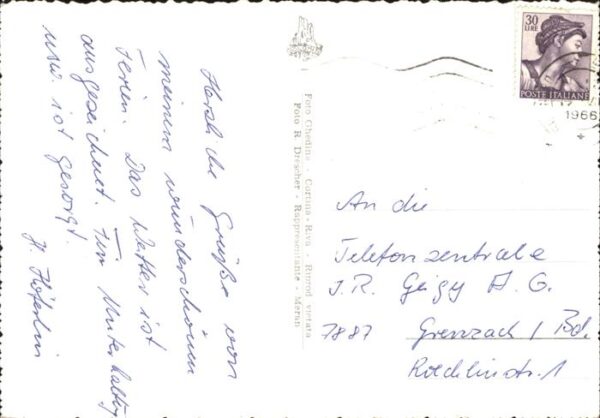 Herzliche Grüße von
meinem wunderschönen
Ferien. Das Wetter ist
ausgezeichnet. Für Unterhaltung
usw. ist gesorgt.
H.
Foto Ghedina - Cortina - Riva - Riprod. vietata
Foto R. Drescher - Rappresentante - Meran
30
LIRE
POSTE ITALIANE
1966
An die
Telefonzentrale
J.R. Geigy A.G.
7887 Grenzach / Bd.
Roechlinstr. 1